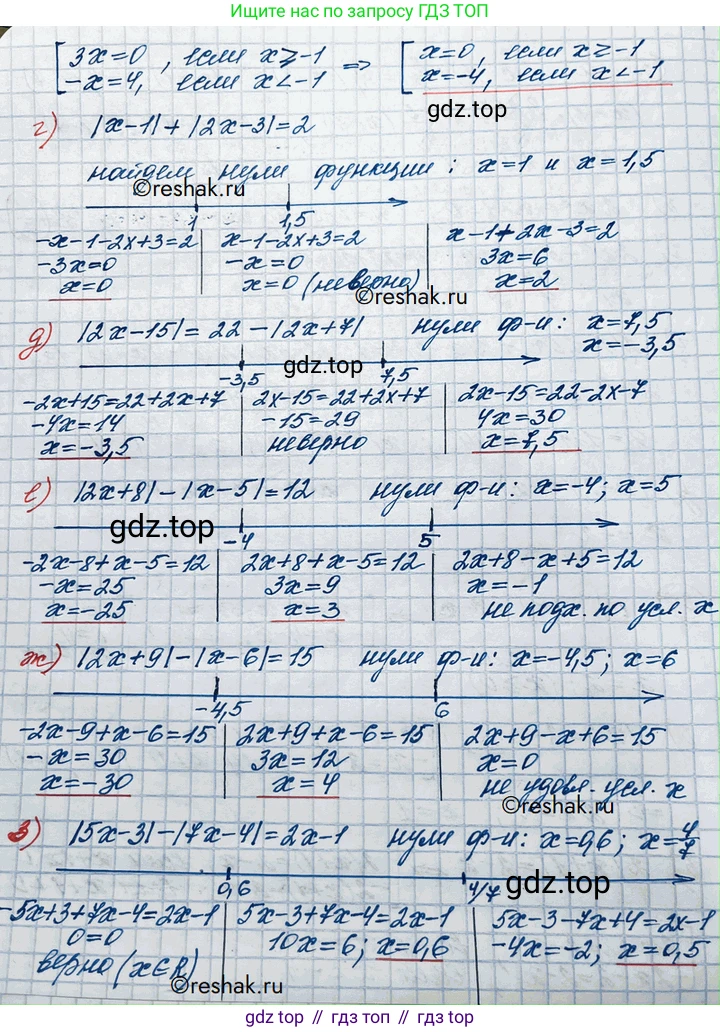 Ищите нас по запросу ГДЗ ТОП
3x=0, если x⩾-1 => x=0, если x≥-1
-x=4, если x<-1 x=-4, если x<-1
gdz.top
г) |x-1|+|2x-3|=2
найдем нули функции: x=1 и x=1,5
©reshak.ru
1 1,5
-x-1-2x+3=2 x-1-2x+3=2 x-1+2x-3=2
-3x=0 -x=0 3x=6
x=0 x=0 (неверно) x=2
©reshak.ru
д) |2x-15|=22-|2x+7| нули ф-и: x=7,5
x=-3,5
gdz.top
-3,5 7,5
-2x+15=22+2x+7 2x-15=22+2x+7 2x-15=22-2x-7
-4x=14 -15=29 4x=30
x=-3,5 неверно x=7,5
е) |2x+8|-|x-5|=12 нули ф-и: x=-4; x=5
gdz.top
-4 5
-2x-8+x-5=12 2x+8+x-5=12 2x+8-x+5=12
-x=25 3x=9 x=-1
x=-25 x=3 не подх. по усл. x
ж) |2x+9|-|x-6|=15 нули ф-и: x=-4,5; x=6
-4,5 6
-2x-9+x-6=15 2x+9+x-6=15 2x+9-x+6=15
-x=30 3x=12 x=0
x=-30 x=4 не удовл. усл. x
©reshak.ru
з) |5x-3|-|7x-4|=2x-1 нули ф-и: x=0,6; x=4/7
0,6 4/7
gdz.top
-5x+3+7x-4=2x-1 5x-3+7x-4=2x-1 5x-3-7x+4=2x-1
0=0 10x=6; x=0,6 -4x=-2; x=0,5
верно (x∈R)
©reshak.ru
gdz.top // гдз топ // gdz.top